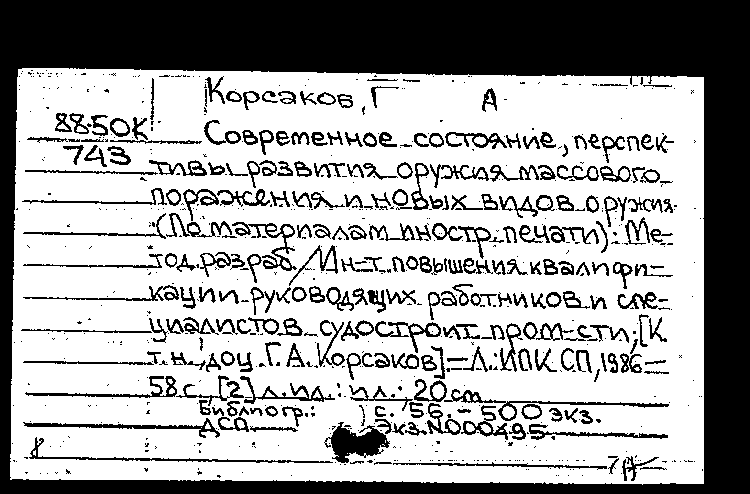 Корсаков, Г А
88-50К Современное состояние, перспек-
743 тивы развития оружия массового
поражения и новых видов оружия.
(По материалам иностр. печати): Ме-
тод. разраб. / Ин-т повышения квалифи-
кации руководящих работников и спе-
циалистов судостроит. пром-сти; [К.
т. н., доц. Г. А. Корсаков]. – Л.: ИПК СП, 1986 –
58 с., [2] л. ил.: ил.; 20 см
Библиогр.: с. 56. – 500 экз.
ДСП. Экз. N 000495.
8